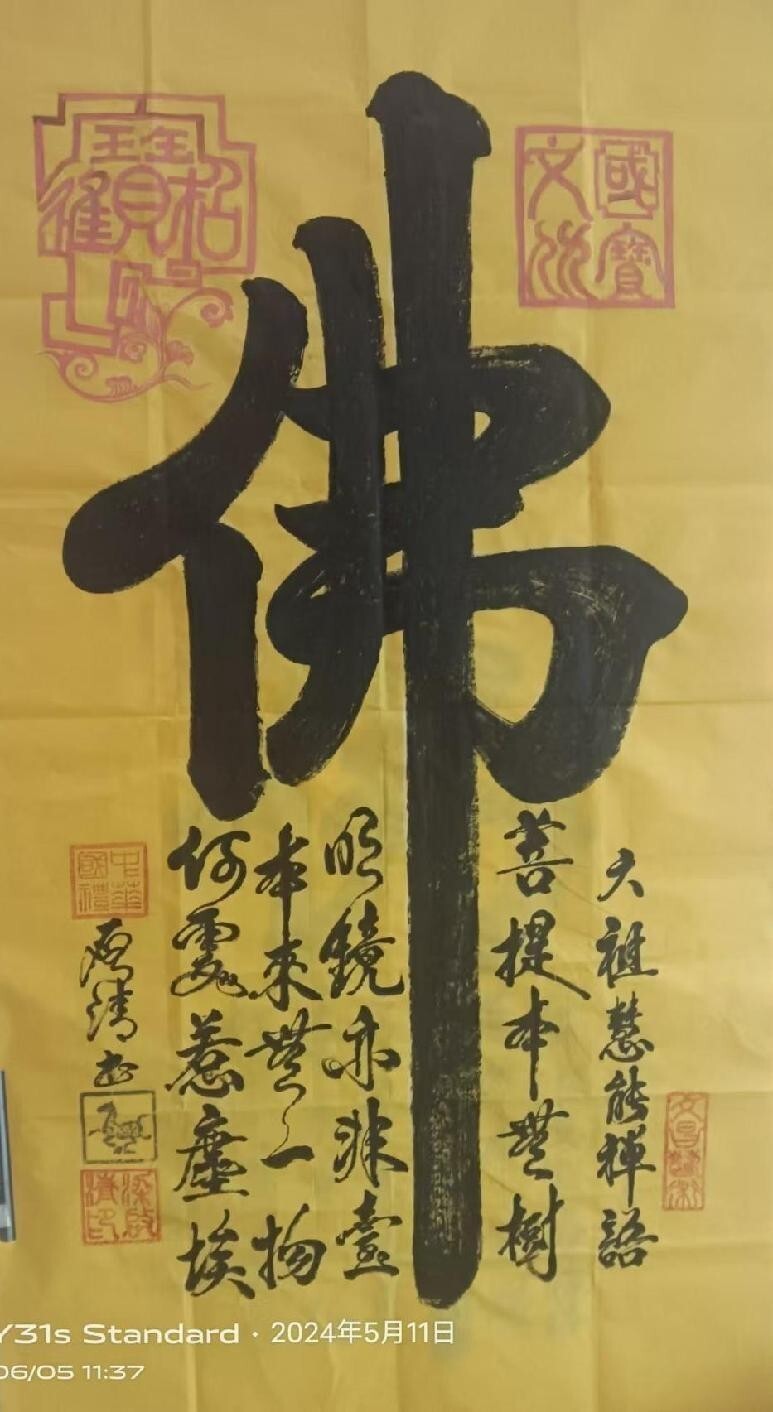 佛
國寶
六祖慧能禅語
菩提本無樹
明鏡亦非臺
本來無一物
何處惹塵埃
中華
國禮
Y31s Standard · 2024年5月11日
06/05 11:37